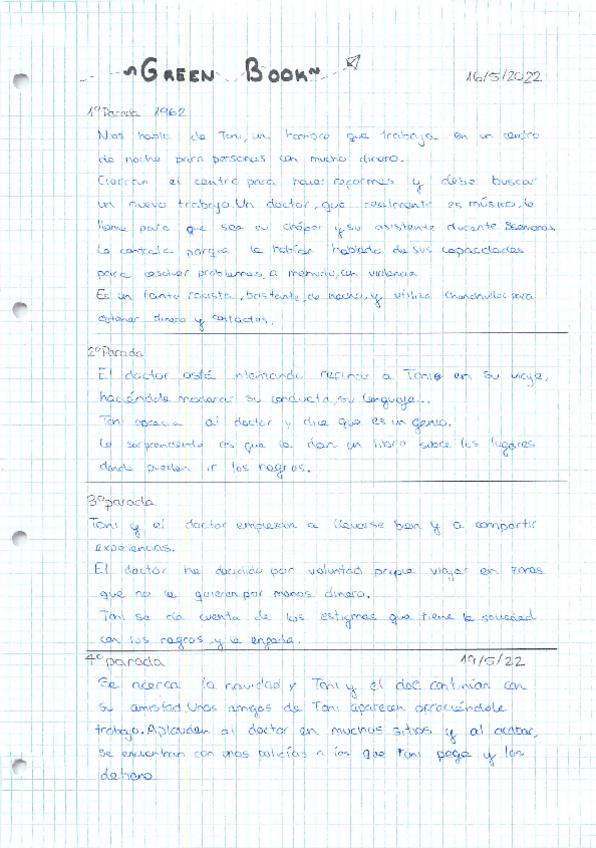 ~GREEN BOOK~
16/5/2022
1º Parada 1962
Nos habla de Toni, un hombre que trabaja en un centro
de noche para personas con mucho dinero.
Cierran el centro para hacer reformas y debe buscar
un nuevo trabajo. Un doctor, que realmente es músico, lo
llama para que sea su chófer y su asistente durante 8 semanas.
Lo contrata porque le habían hablado de sus capacidades
para resolver problemas, a menudo, con violencia.
Es un tanto racista, bastante, de hecho, y utiliza chanchullos para
obtener dinero y contactos.
2º Parada
El doctor está intentando refinar a Toni en su viaje,
haciéndole moderar su conducta, su lenguaje...
Toni aprecia al doctor y dice que es un genio.
Lo sorprendente es que le dan un libro sobre los lugares
donde pueden ir los negros.
3º parada
Toni y el doctor empiezan a llevarse bien y a compartir
experiencias.
El doctor ha decidido por voluntad propia viajar en zonas
que no le quieren por menos dinero.
Toni se da cuenta de los estigmas que tiene la sociedad
con los negros y le enfada.
4º parada 19/5/22
Se acerca la navidad y Toni y el doc continúan con
su amistad. Unos amigos de Toni aparecen ofreciéndole
trabajo. Aplauden al doctor en muchos sitios y al acabar,
se encuentran con unos policías a los que Toni pega y los
detiene.